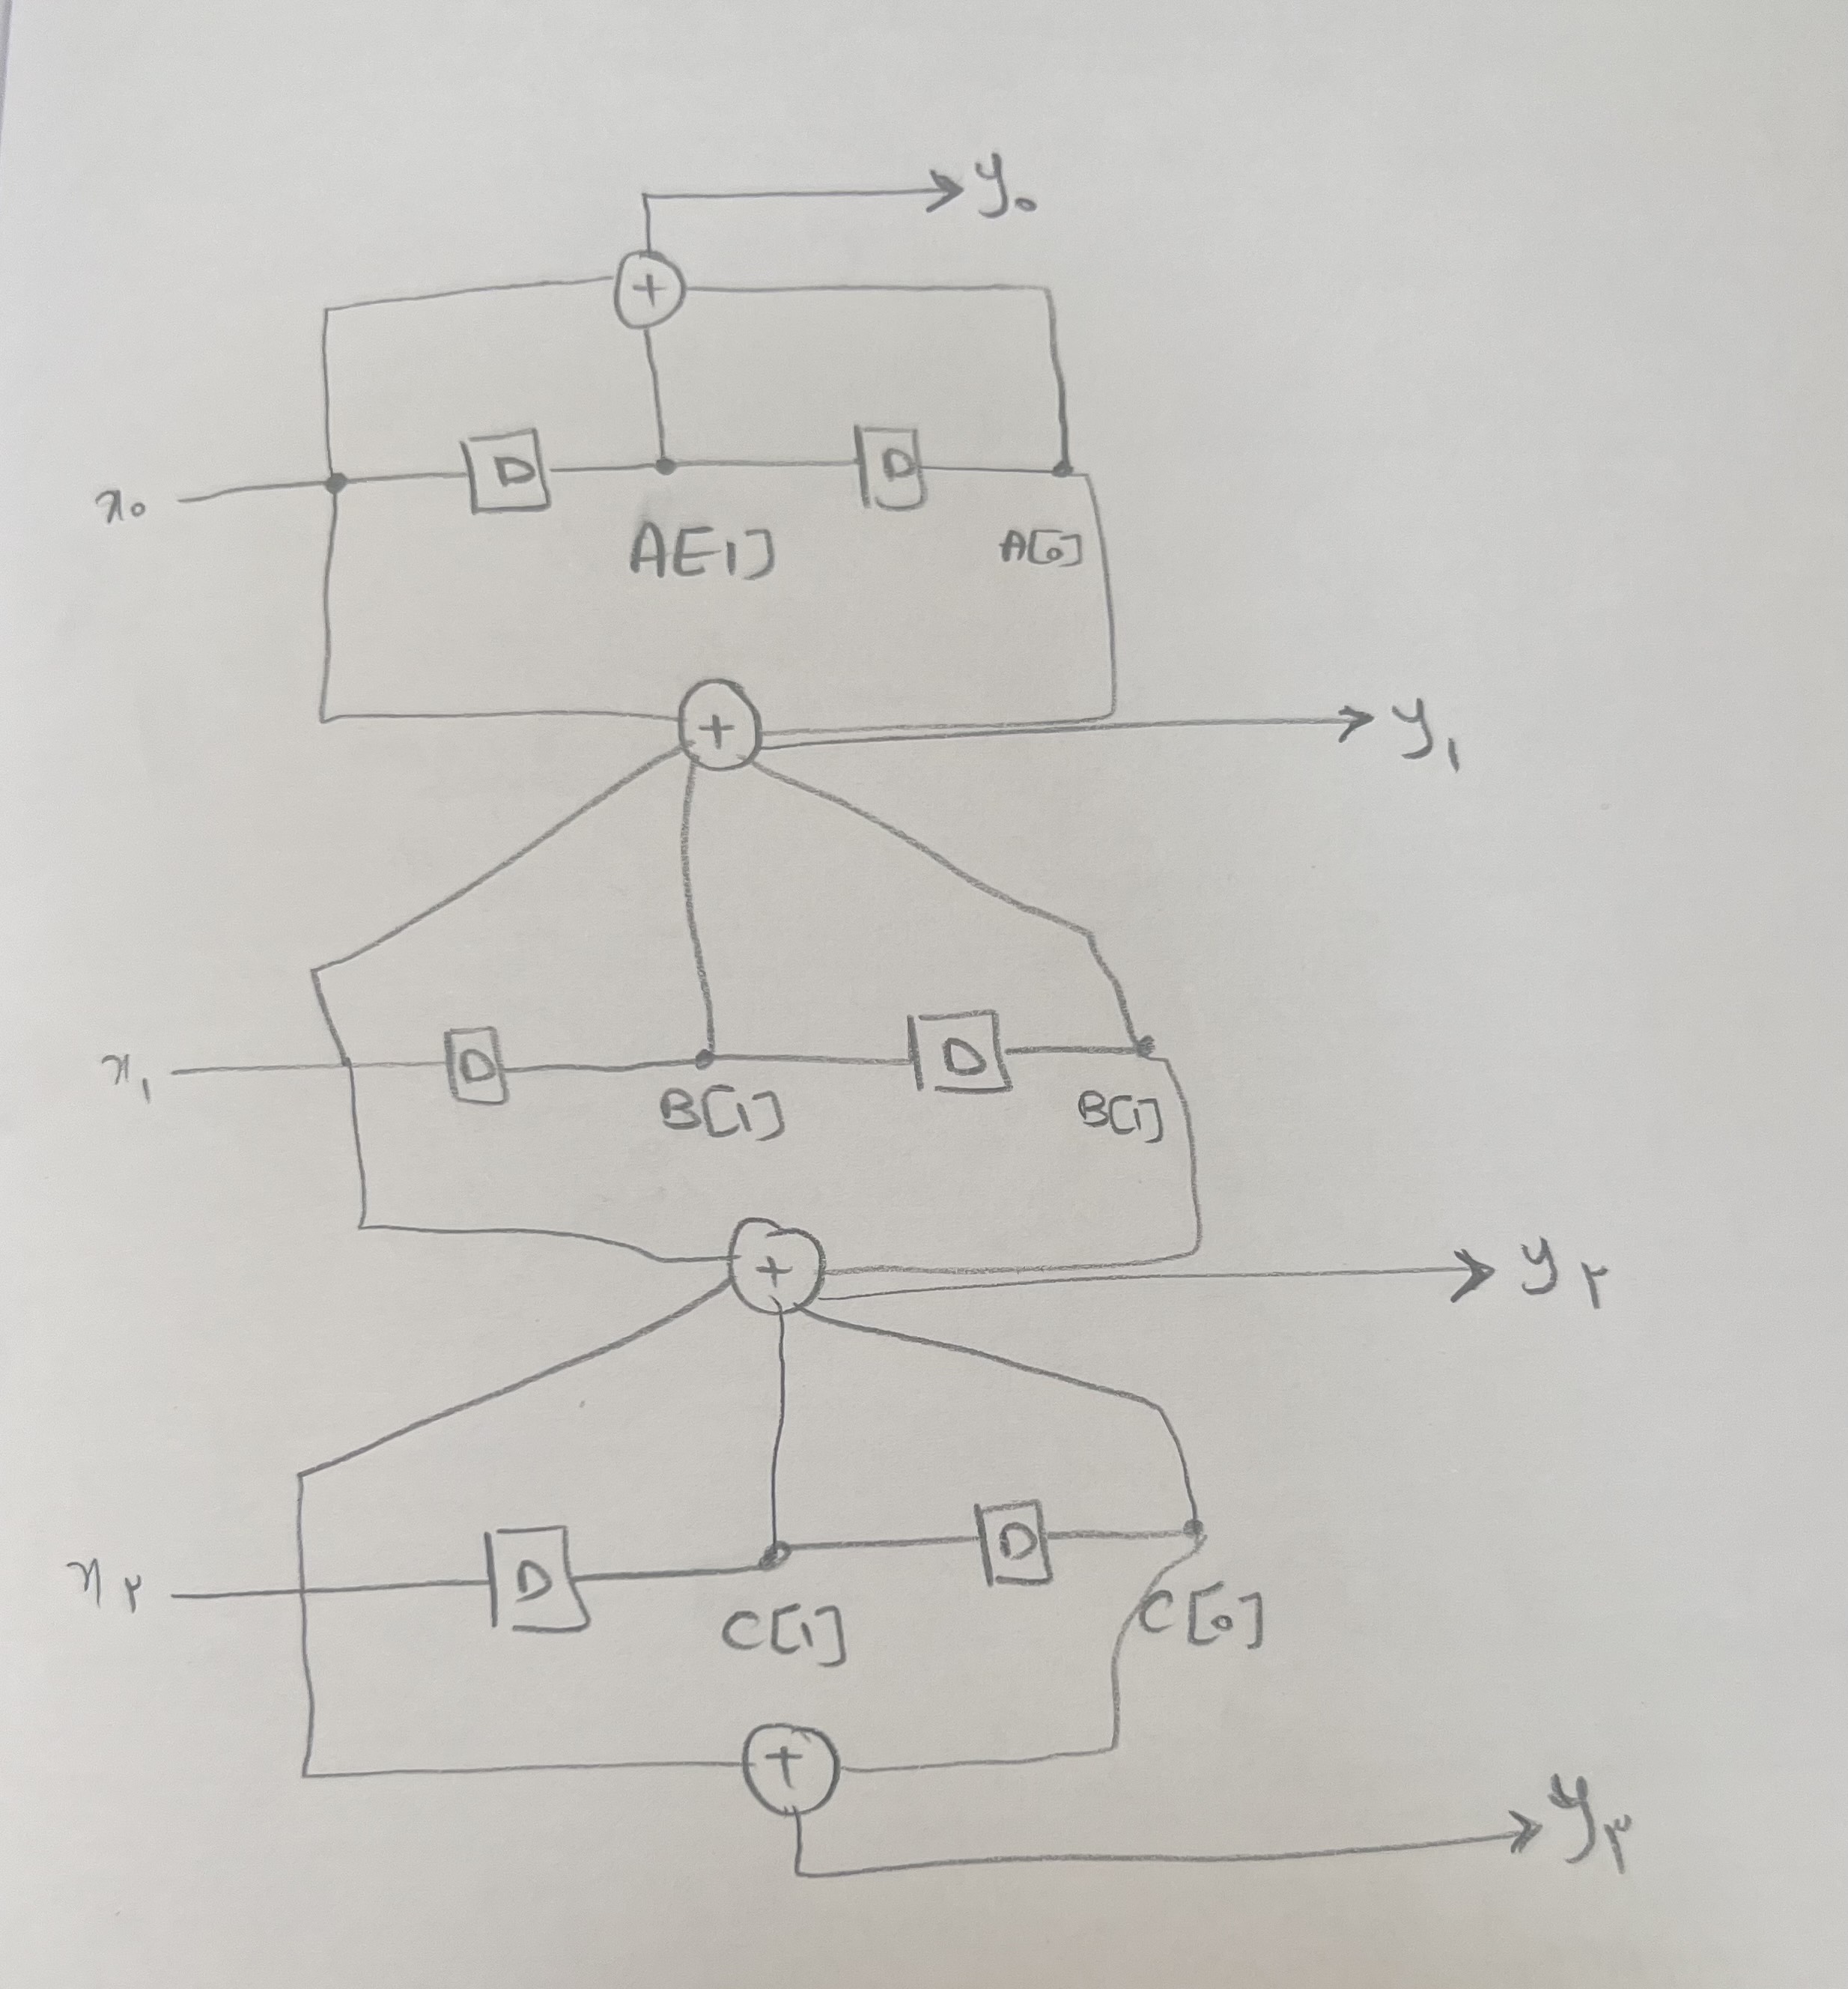 y۰
+
x₀ D D
A[1] A[0]
+ y۱
x۱ D D
B[1] B[1]
+ y۲
x۲ D D
C[1] C[0]
+
y۳